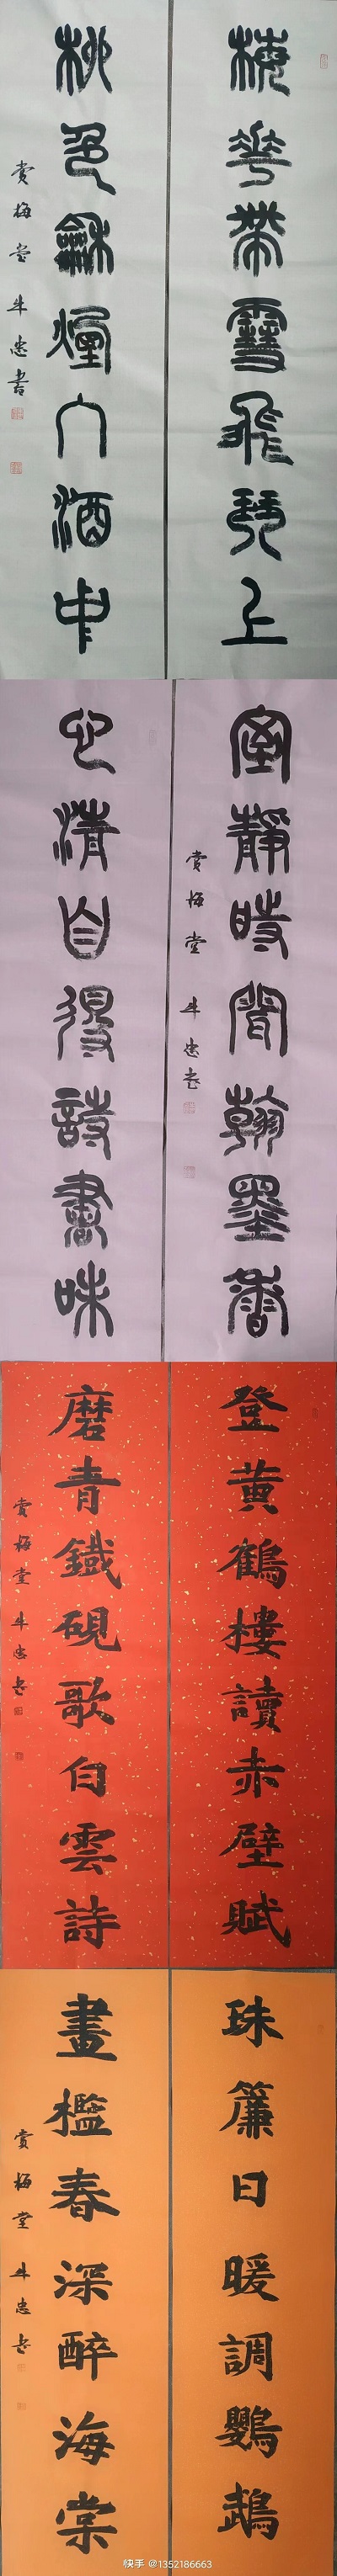 梅華帶雪飛琴上
柳色龢煙入酒中
賞梅堂 牛忠書
室靜時聞翰墨香
賞梅堂 牛忠書
心清自得詩書味
登黃鶴樓讀赤壁賦
磨青鐵硯歌白雲詩
賞梅堂 牛忠書
珠簾日暖調鸚鵡
畫檻春深醉海棠
賞梅堂 牛忠書
快手 @1352186663